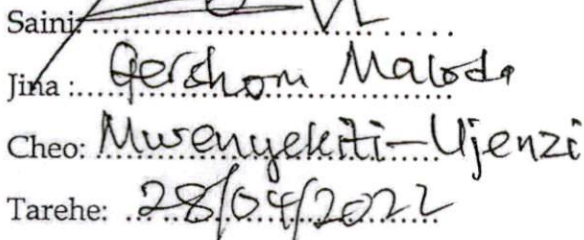 Saini:
Jina : Gershom Maloda
Cheo: Mwenyekiti-Ujenzi
Tarehe: 28/04/2022